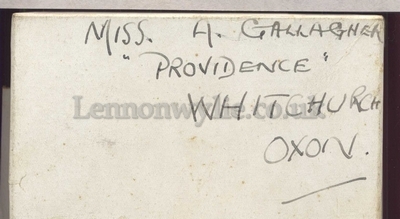 MISS. H. GALLAGHER
"PROVIDENCE"
WHITCHURCH
Lennonwylie.co.uk
OXON.